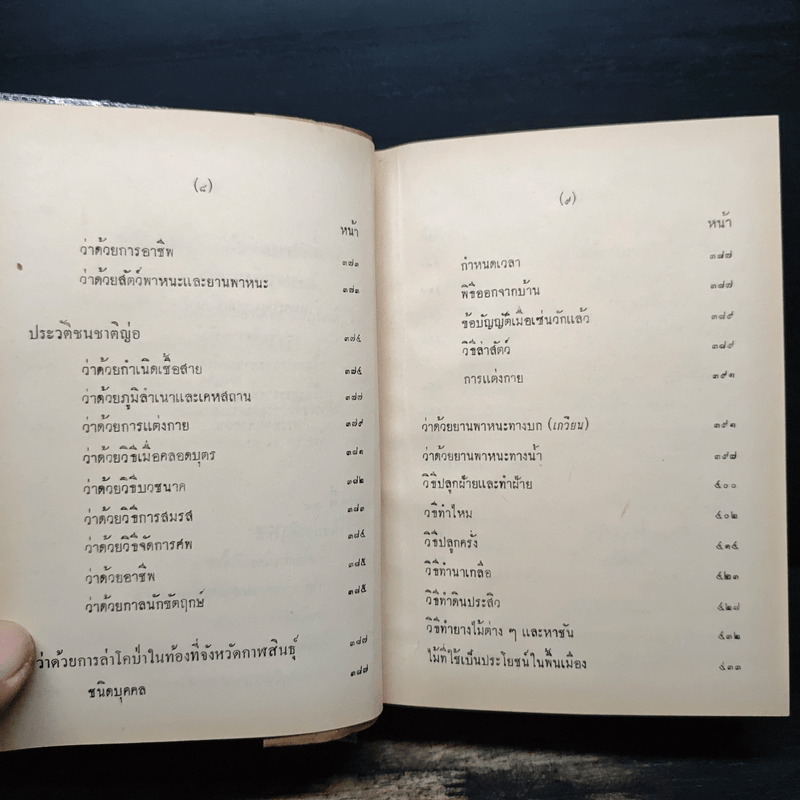 (๘)
หน้า
ว่าด้วยการอาชีพ ๓๗๑
ว่าด้วยสัตว์พาหนะและยานพาหนะ ๓๗๑
ประวัติชนชาติญ่อ ๓๗๔
ว่าด้วยกำเนิดเชื้อสาย ๓๗๔
ว่าด้วยภูมิลำเนาและเคหสถาน ๓๗๗
ว่าด้วยการแต่งกาย ๓๗๙
ว่าด้วยวิธีเมื่อคลอดบุตร ๓๘๑
ว่าด้วยวิธีบวชนาค ๓๘๒
ว่าด้วยวิธีการสมรส ๓๘๓
ว่าด้วยวิธีจัดการศพ ๓๘๔
ว่าด้วยอาชีพ ๓๘๕
ว่าด้วยกาลนักขัตฤกษ์ ๓๘๕
ว่าด้วยการล่าโคป่าในท้องที่จังหวัดกาฬสินธุ์ ๓๘๗
ชนิดบุคคล ๓๘๗
(๙)
หน้า
กำหนดเวลา ๓๘๗
พิธีออกจากบ้าน ๓๘๗
ข้อบัญญัติเมื่อเซ่นวักแล้ว ๓๘๙
วิธีล่าสัตว์ ๓๘๙
การแต่งกาย ๓๙๑
ว่าด้วยยานพาหนะทางบก (เกวียน) ๓๙๑
ว่าด้วยยานพาหนะทางน้ำ ๓๙๘
วิธีปลูกฝ้ายและทำฝ้าย ๔๐๐
วิธีทำไหม ๔๐๒
วิธีปลูกครั่ง ๔๑๔
วิธีทำนาเกลือ ๔๒๓
วิธีทำดินประสิว ๔๒๗
วิธีทำยางไม้ต่าง ๆ และหาชัน ๔๓๒
ไม้ที่ใช้เป็นประโยชน์ในพื้นเมือง ๔๓๓